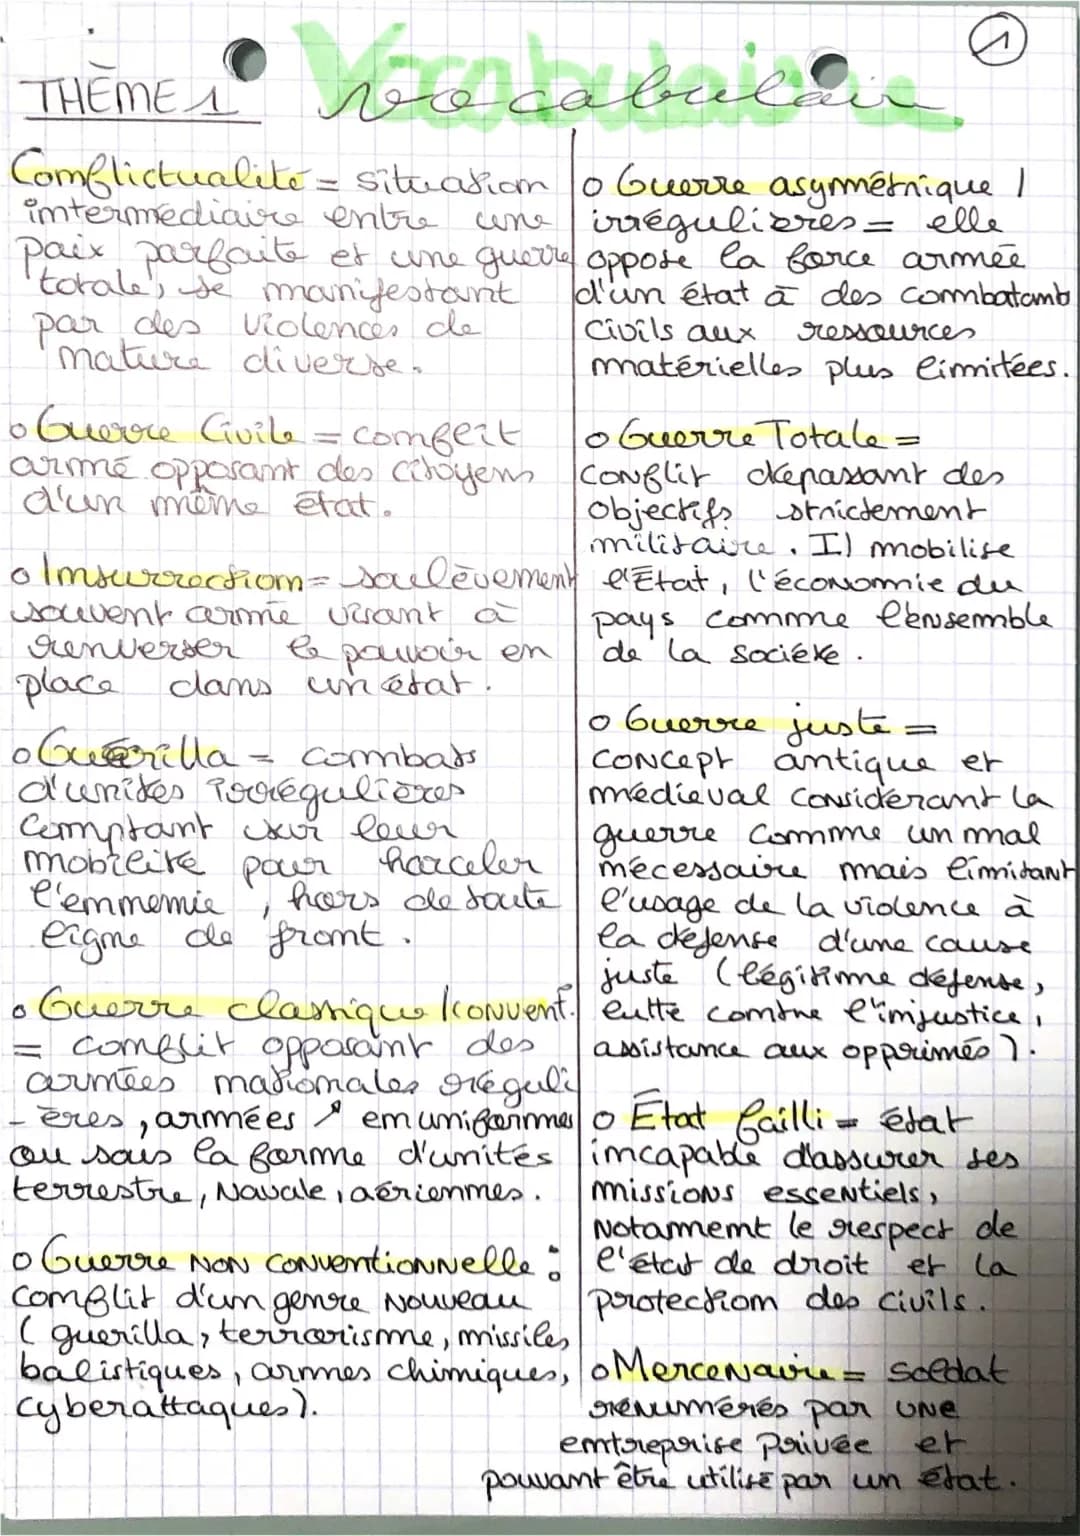 1
THÈME 1 Vocabulaire
Conflictualité = situation
intermédiaire entre une
paix parfaite et une guerre
totale, se manifestant
par des violences de
nature diverse.
o Guerre Civile = conflit
armé opposant des citoyens
d'un même état.
o Insurrection = soulèvement
souvent armé visant à
renverser le pouvoir en
place dans un état.
o Guérilla = combats
d'unités irrégulières
comptant sur leur
mobilité pour harceler
l'ennemie, hors de toute
ligne de front.
o Guerre classique / convent.
= conflit opposant des
armées nationales réguli
- ères, armées, en uniformes
ou sous la forme d'unités
terrestre, Navale, aériennes.
o Guerre NON CONVENTIONNelle :
conflit d'un genre Nouveau
( guerilla, terrorisme, missiles,
balistiques, armes chimiques,
cyberattaques).
o Guerre asymétrique /
irrégulières = elle
oppose la force armée
d'un état à des combatants
civils aux ressources
matérielles plus limitées.
o Guerre Totale =
conflit dépassant des
objectifs strictement
militaire. Il mobilise
l'État, l'économie du
pays comme l'ensemble
de la société.
o Guerre juste =
concept antique et
médieval considérant la
guerre comme un mal
nécessaire mais limitant
l'usage de la violence à
la défense d'une cause
juste (légitime défense,
lutte contre l'injustice,
assistance aux opprimés).
o État failli = état
incapable d'assurer ses
missions essentiels,
Notamment le respect de
l'état de droit et la
protection des civils.
o Mercenaire = soldat
rénumérés par une
entreprise Privée et
pouvant être utilisé par un état.